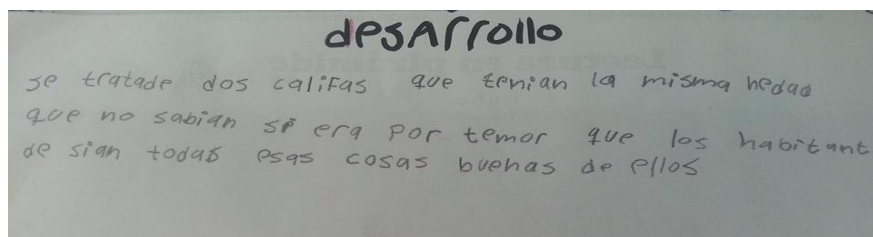 desarrollo
se tratade dos califas que tenian la misma hedad
que no sabian si era por temor que los habitant
de sian todas esas cosas buenas de ellos